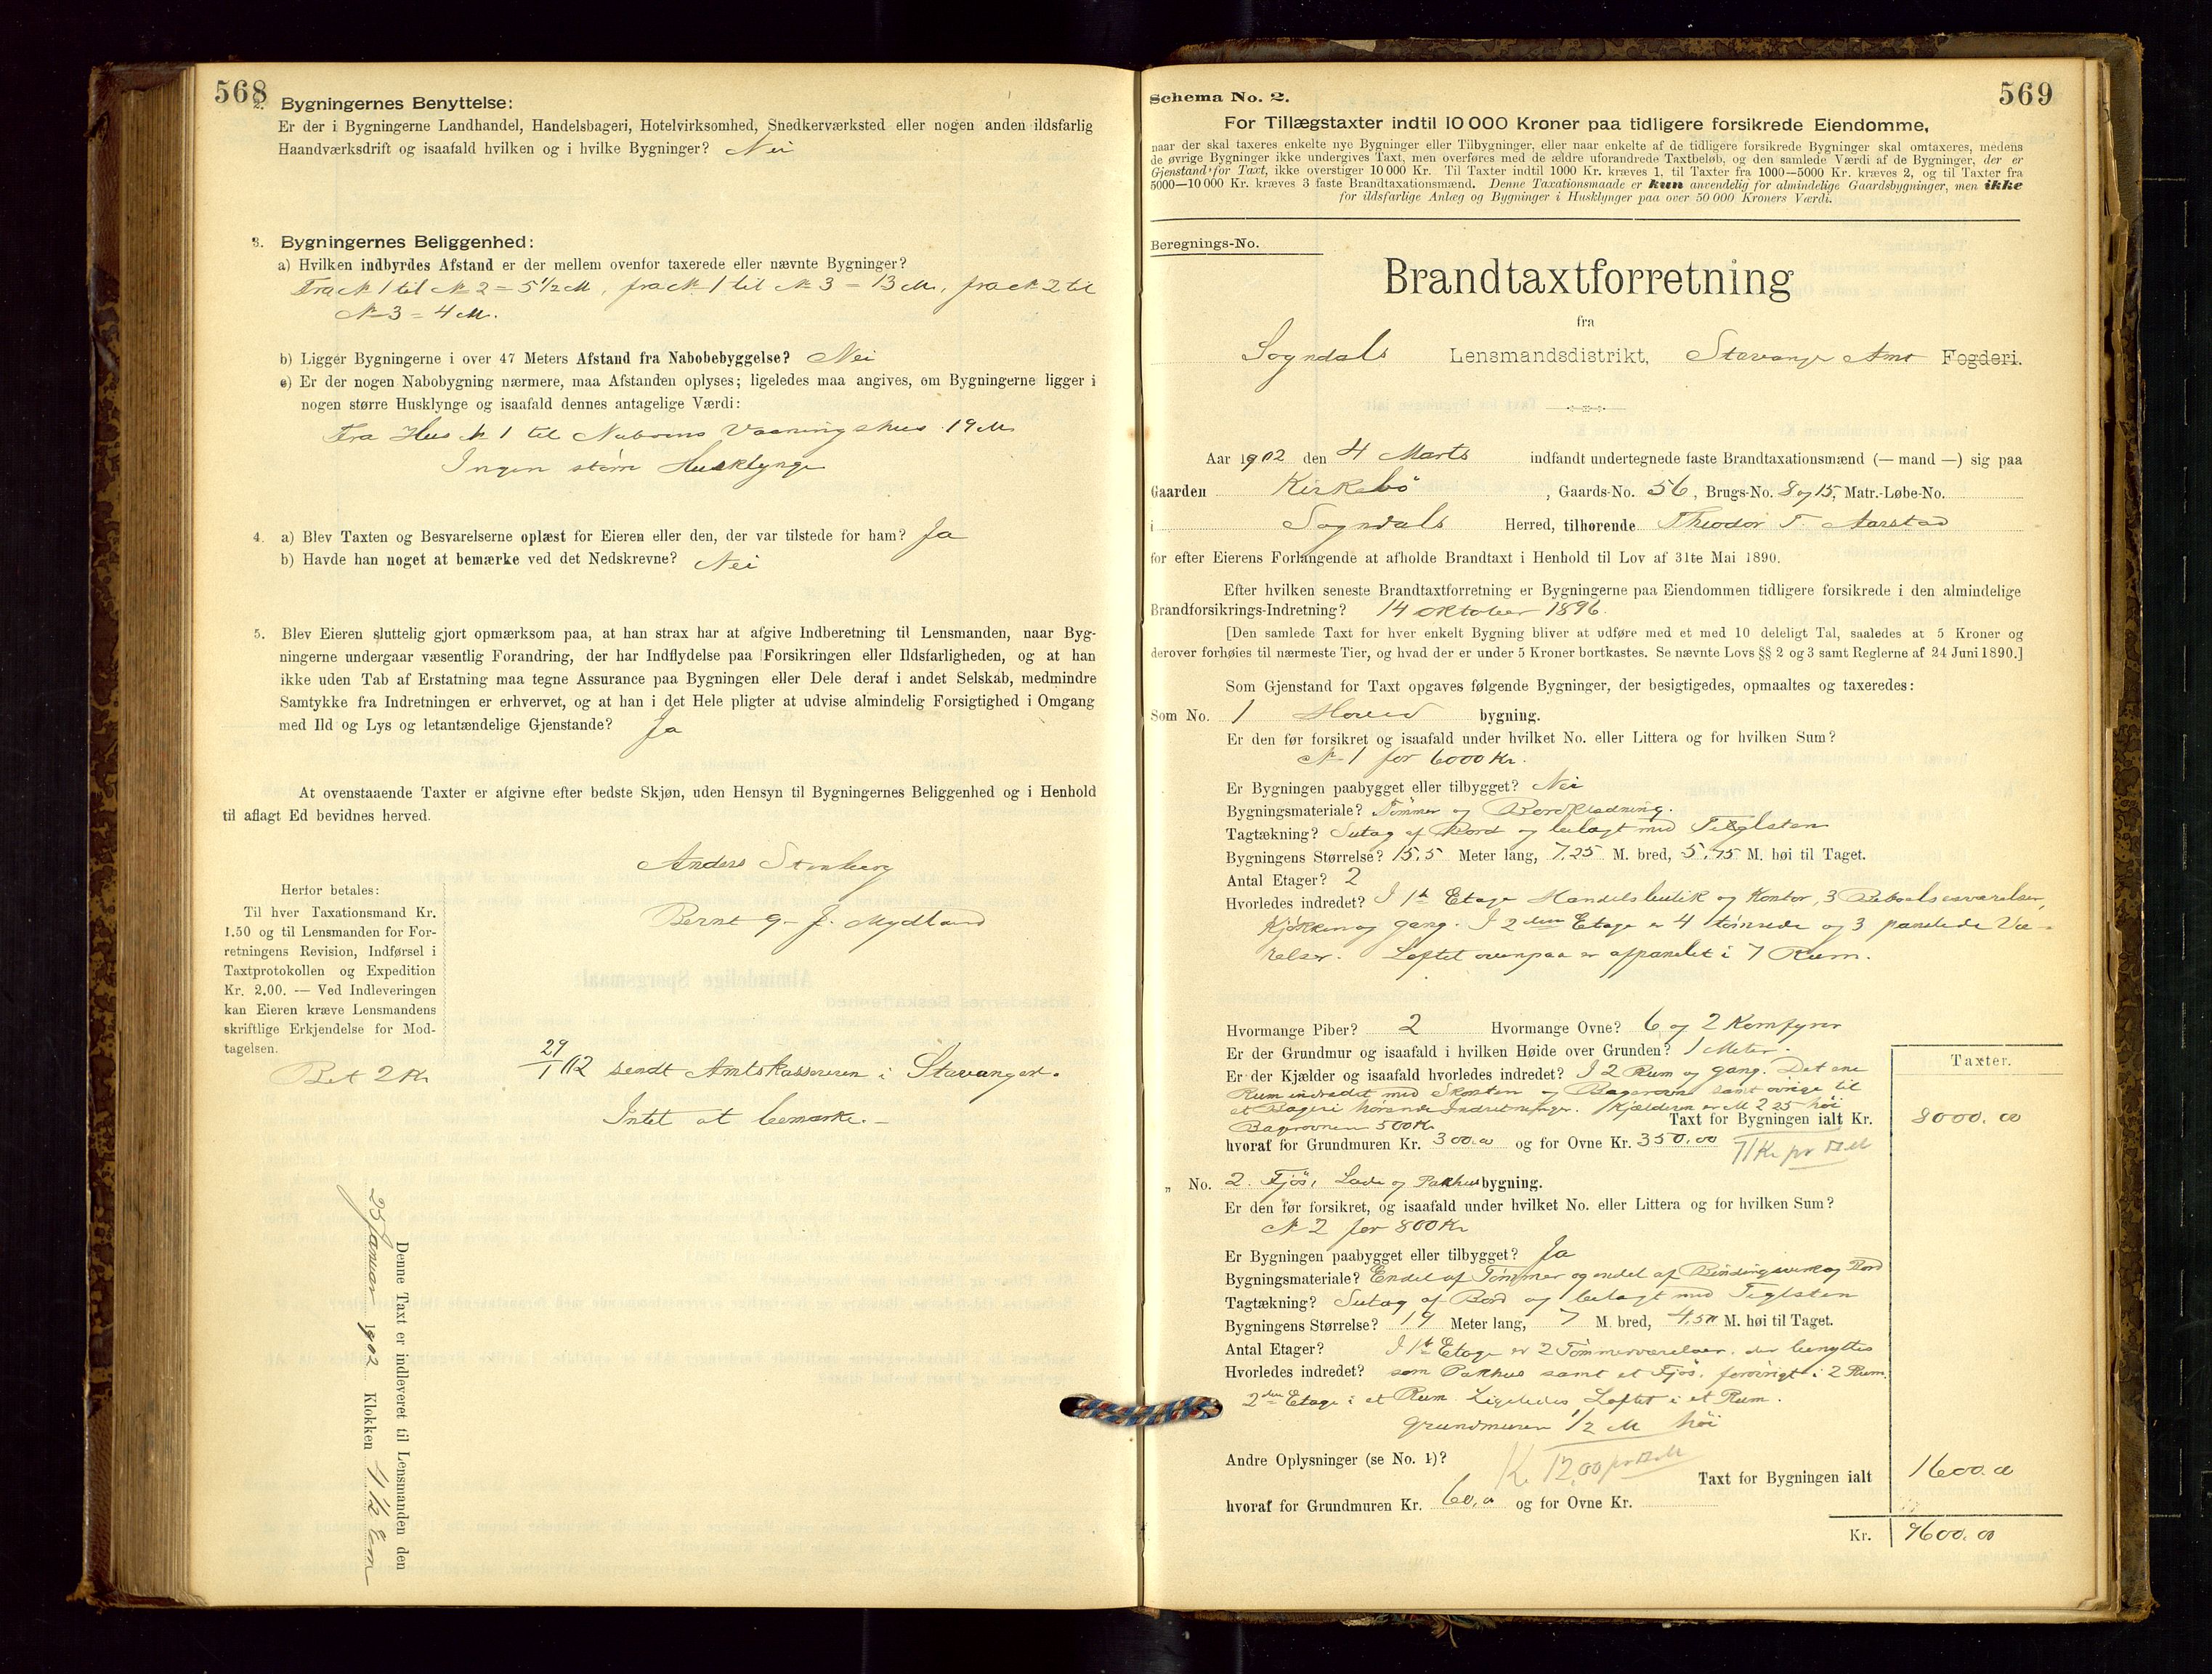 568
2. Bygningernes Benyttelse:
Er der i Bygningerne Landhandel, Handelsbageri, Hotelvirksomhed, Snedkerværksted eller nogen anden ildsfarlig
Haandværksdrift og isaafald hvilken og i hvilke Bygninger? Nei
3. Bygningernes Beliggenhed:
a) Hvilken indbyrdes Afstand er der mellem ovenfor taxerede eller nævnte Bygninger?
Fra № 1 til № 2 = 5 1/2 M, fra № 1 til № 3 = 13 M, fra № 2 til
№ 3 = 4 M.
b) Ligger Bygningerne i over 47 Meters Afstand fra Nabobebyggelse? Nei
c) Er der nogen Nabobygning nærmere, maa Afstanden oplyses; ligeledes maa angives, om Bygningerne ligger i
nogen større Husklynge og isaafald dennes antagelige Værdi:
Fra Hus № 1 til Naboens Vaaningshus 19 M
Ingen større Husklynge
4. a) Blev Taxten og Besvarelserne oplæst for Eieren eller den, der var tilstede for ham? Ja
b) Havde han noget at bemærke ved det Nedskrevne? Nei
5. Blev Eieren sluttelig gjort opmærksom paa, at han strax har at afgive Indberetning til Lensmanden, naar Byg-
ningerne undergaar væsentlig Forandring, der har Indflydelse paa Forsikringen eller Ildsfarligheden, og at han
ikke uden Tab af Erstatning maa tegne Assurance paa Bygningen eller Dele deraf i andet Selskab, medmindre
Samtykke fra Indretningen er erhvervet, og at han i det Hele pligter at udvise almindelig Forsigtighed i Omgang
med Ild og Lys og letantændelige Gjenstande? Ja
At ovenstaaende Taxter er afgivne efter bedste Skjøn, uden Hensyn til Bygningernes Beliggenhed og i Henhold
til aflagt Ed bevidnes herved.
Anders Stenberg
Bernt G. J. Mydland
Herfor betales:
Til hver Taxationsmand Kr.
1.50 og til Lensmanden for For-
retningens Revision, Indførsel i
Taxtprotokollen og Expedition
Kr. 2.00. — Ved Indleveringen
kan Eieren kræve Lensmandens
skriftlige Erkjendelse for Mod-
tagelsen.
Bet 2 Kr
29/1 02 sendt Amtskassereren i Stavanger.
Intet at bemærke. —
Denne Taxt er indleveret til Lensmanden den
25 Januar 1902 Klokken 4 1/2 Em
569
Schema No. 2.
For Tillægstaxter indtil 10 000 Kroner paa tidligere forsikrede Eiendomme,
naar der skal taxeres enkelte nye Bygninger eller Tilbygninger, eller naar enkelte af de tidligere forsikrede Bygninger skal omtaxeres, medens
de øvrige Bygninger ikke undergives Taxt, men overføres med de ældre uforandrede Taxtbeløb, og den samlede Værdi af de Bygninger, der er
Gjenstand for Taxt, ikke overstiger 10 000 Kr. Til Taxter indtil 1000 Kr. kræves 1, til Taxter fra 1000—5000 Kr. kræves 2, og til Taxter fra
5000—10 000 Kr. kræves 3 faste Brandtaxationsmænd. Denne Taxationsmaade er kun anvendelig for almindelige Gaardsbygninger, men ikke
for ildsfarlige Anlæg og Bygninger i Husklynger paa over 50 000 Kroners Værdi.
Beregnings-No.
Brandtaxtforretning
fra
Sogndals Lensmandsdistrikt, Stavanger Amt Fogderi.
Aar 1902 den 4 Marts indfandt undertegnede faste Brandtaxationsmænd (— mand —) sig paa
Gaarden Kirkebø, Gaards-No. 56, Brugs-No. 8 og 15, Matr.-Løbe-No.
i Sogndals Herred, tilhørende Theodor T. Aarstad
for efter Eierens Forlangende at afholde Brandtaxt i Henhold til Lov af 31te Mai 1890.
Efter hvilken seneste Brandtaxtforretning er Bygningerne paa Eiendommen tidligere forsikrede i den almindelige
Brandforsikrings-Indretning? 14 Oktober 1896.
[Den samlede Taxt for hver enkelt Bygning bliver at udføre med et med 10 deleligt Tal, saaledes at 5 Kroner og
derover forhøies til nærmeste Tier, og hvad der er under 5 Kroner bortkastes. Se nævnte Lovs §§ 2 og 3 samt Reglerne af 24 Juni 1890.]
Som Gjenstand for Taxt opgaves følgende Bygninger, der besigtigedes, opmaaltes og taxeredes:
Som No. 1 Hoved bygning.
Er den før forsikret og isaafald under hvilket No. eller Littera og for hvilken Sum?
№ 1 for 6000 Kr.
Er Bygningen paabygget eller tilbygget? Nei
Bygningsmateriale? Tømmer og Bordklædning.
Tagtækning? Sutag af Bord og belagt med Teglsten
Bygningens Størrelse? 15,5 Meter lang, 7,25 M. bred, 5,75 M. høi til Taget.
Antal Etager? 2
Hvorledes indredet? I 1ste Etage Handelsbutik og Kontor, 3 Beboelsesværelser,
Kjøkken og gang. I 2den Etage er 4 tømrede og 3 panelede Væ-
relser. Loftet ovenpaa er afpanelet i 7 Rum.
Hvormange Piber? 2 Hvormange Ovne? 6 og 2 Komfyrer
Er der Grundmur og isaafald i hvilken Høide over Grunden? 1 Meter.
Er der Kjælder og isaafald hvorledes indredet? I 2 Rum og gang. Det ene
Rum indredet med Skorsten og Bagerovn samt øvrige til
et Bageri hørende Indretninger. Kjælderen er M 2 25 høi
Bagerovnen 500 Kr
Taxter.
Taxt for Bygningen ialt Kr. 8000.00
hvoraf for Grundmuren Kr. 300.00 og for Ovne Kr. 350.00 71 Kr pr □ M
„ No. 2. Fjøs, Lade og Pakhus bygning.
Er den før forsikret, og isaafald under hvilket No. eller Littera og for hvilken Sum?
№ 2 for 800 Kr
Er Bygningen paabygget eller tilbygget? Ja
Bygningsmateriale? Endel af Tømmer og endel af Bindingsverk og Bord
Tagtækning? Sutag af Bord og belagt med Teglsten
Bygningens Størrelse? 19 Meter lang, 7 M. bred, 4,50 M. høi til Taget.
Antal Etager? I 1ste Etage er 2 Tømmerværelser, der benyttes
Hvorledes indredet? som Pakhus samt et Fjøs, forøvrigt i 2 Rum.
2den Etage i et Rum. Ligeledes Loftet i et Rum.
Grundmuren 1/2 M høi
Andre Oplysninger (se No. 1)? K. 12,00 pr □ M
Taxt for Bygningen ialt 1600.00
hvoraf for Grundmuren Kr. 60,00 og for Ovne Kr.
Kr. 9600.00